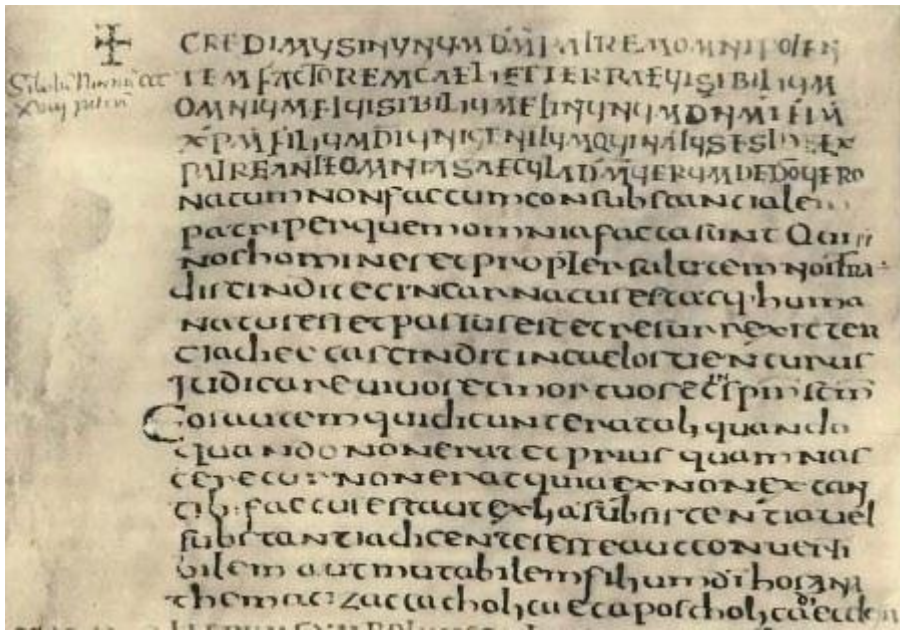 CREDIMUS IN UNUM DM PATREM OMNIPOTEN
TEM FACTOREM CAELI ET TERRAE UISIBILIUM
OMNIUM ET IUISIBILIUM ET IN UNUM DNM IHM
XPM FILIUM DI UNIGENITUM QUI NATUS EST EX
PATRE ANTE OMNIA SAECULA DM UERUM DE DO UERO
natum non factum consubstancialem
patri per quem omnia facta sunt Qui
nos homines et propter salutem nostra
discindit et incarnatus est atq. huma
natus est et passus est et resurrexit ter
tia die et ascindit in caelos uenturus
judicare uiuos et mortuos et spm scm
Eos autem qui dicunt erat aliquando
quando non erat et prius quam nas
ceretur non erat quia ex non extan
tib. factus est aut ex alia subsistentia uel
substantia dicentes esse aut conuerti
bilem aut mutabilem filium di hos ana